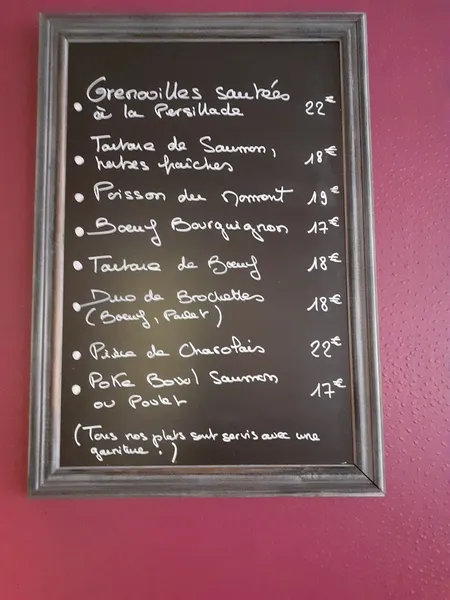 • Grenouilles sautées
à la Persillade 22€
• Tartare de Saumon,
herbes fraîches 18€
• Poisson du moment 19€
• Boeuf Bourguignon 17€
• Tartare de Boeuf 18€
• Duo de Brochettes 18€
(Boeuf, Poulet)
• Pièce de Charolais 22€
• Poke Bowl Saumon
ou Poulet 17€
(Tous nos plats sont servis avec une
garniture.)